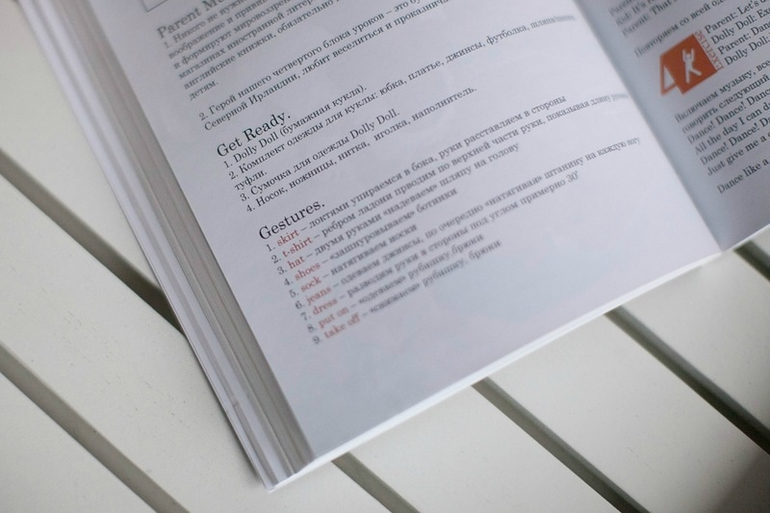 Parent Me
1. Никого не нужно
воображение и
и формирует мировоззрен
магазинах иностранной литер
английские книжки, обязательно
детям.
2. Герой нашего четвертого блока уроков – это
Северной Ирландии, любит веселиться и
Get Ready.
1. Dolly Doll (бумажная кукла).
2. Комплект одежды для куклы: юбка, платье, джинсы, футболка,
туфли.
3. Сумочка для одежды Dolly Doll.
4. Носок, ножницы, нитка, иголка, наполнитель.
Gestures.
1. skirt – локтями упираемся в бока, руки расставляем в стороны
2. t-shirt – ребром ладони проводим по верхней части руки, показывая длину
3. hat – двумя руками «надеваем» шляпу на голову
4. shoes – «зашнуровываем» ботинки
5. sock – натягиваем носки
6. jeans – одеваем джинсы, по очередно «натягивая» штанину на каждую ногу
7. dress – разводим руки в стороны под углом примерно 30°
8. put on – «одеваю» рубашку, брюки
9. take off – «снимаю» рубашку, брюки
Parent:
Doll: It's
Parent: That's
Повторяем со всей
EXERCISE
Parent: Let's
Dolly Doll:
Parent: Dance
Dolly Doll:
Включаем музыку, все
говорить следующий
Dance! Dance! Dance
All the day I can d
Dance! Dance! Dance
Just give me a
Dance like a